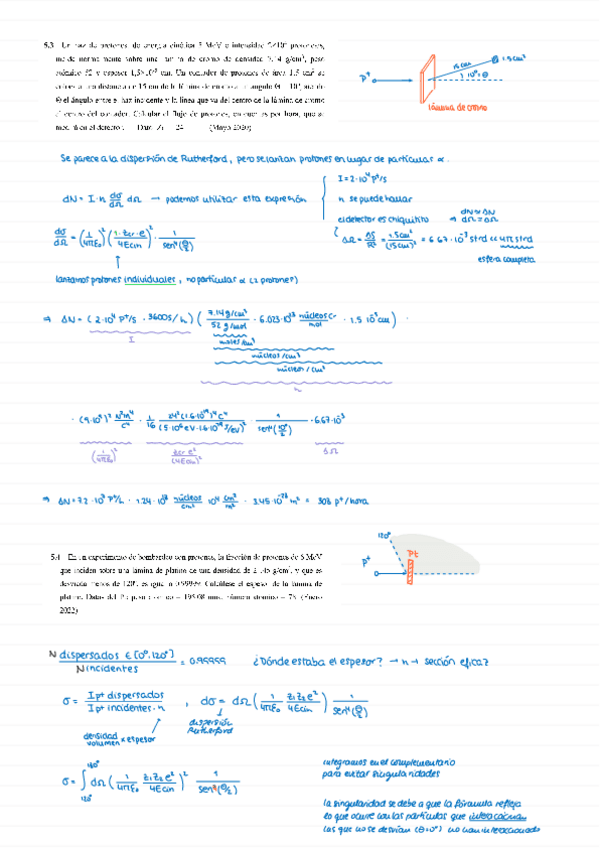 5.3 Un haz de protones, de energía cinética 5 MeV e intensidad 2×10⁴ protones/s,
incide normalmente sobre una lámina de cromo de densidad 7.14 g/cm³, peso
atómico 52 y espesor 1,5×10⁻⁵ cm. Un contador de protones de área 1.5 cm² se
coloca a una distancia de 15 cm de la lámina de cromo a un ángulo Θ = 10°, siendo
Θ el ángulo entre el haz incidente y la línea que va del centro de la lámina de cromo
al centro del contador. Calcular el flujo de protones, en cuentas por hora, que se
mide en el detector. Dato: Z = 24 (Mayo 2020)
p⁺
15 cm
1.5 cm²
10° = Θ
lámina de cromo
Se parece a la dispersión de Rutherford, pero se lanzan protones en lugar de partículas α.
dN = I·n dσ/dΩ dΩ → podemos utilizar esta expresión
I = 2·10⁴ p⁺/s
n se puede hallar
el detector es chiquitito → dN ≈ ΔN
dΩ ≈ ΔΩ
ΔΩ = ΔS/R² = 1.5cm²/(15cm)² = 6.67·10⁻³ strd ≪ 4π strd
esfera completa
dσ/dΩ = (1/4πε₀)² (1·Zcr·e²/4Ecin)² · 1/sen⁴(Θ/2)
lanzamos protones individuales, no partículas α (2 protones)
⇒ ΔN = (2·10⁴ p⁺/s · 3600s/h) (7.14 g/cm³ / 52 g/mol · 6.023·10²³ núcleos Cr/mol · 1.5·10⁻⁵ cm) ·
I
moles/cm³
núcleos/cm³
núcleos/cm²
n
· (9·10⁹)² N²m⁴/C⁴ · 1/16 24²(1.6·10⁻¹⁹)⁴C⁴/(5·10⁶eV·1.6·10⁻¹⁹J/eV)² · 1/sen⁴(10°/2) · 6.67·10⁻³
(1/4πε₀)²
Zcr e²/(4Ecin)²
ΔΩ
⇒ ΔN = 7.2·10⁷ p⁺/h · 1.24·10¹⁸ núcleos/cm² 10⁴ cm²/m² · 3.45·10⁻²⁸ m² = 308 p⁺/hora
5.4 En un experimento de bombardeo con protones, la fracción de protones de 6 MeV
que inciden sobre una lámina de platino de una densidad de 21.45 g/cm³, y que es
desviada menos de 120°, es igual a 0.99999. Calcúlese el espesor de la lámina de
platino. Datos del Pt: peso atómico = 195.08 uma, número atómico = 78 (Enero
2022)
120°
p⁺
Pt
N dispersados ∈ [0°, 120°] / N incidentes = 0.99999 ¿Dónde estaba el espesor? → n → sección eficaz
σ = I pt dispersados / I pt incidentes · n , dσ = dΩ (1/4πε₀ Z₁Z₂e²/4Ecin) 1/sen⁴(Θ/2)
densidad volumen × espesor
dispersión Rutherford
σ = ∫ dΩ (1/4πε₀ Z₁Z₂e²/4Ecin)² 1/sen⁴(Θ/2)
180°
120°
integramos en el complementario
para evitar singularidades
la singularidad se debe a que la fórmula refleja
lo que ocurre con las partículas que interaccionan
las que no se desvían (Θ=0°) no han interaccionado